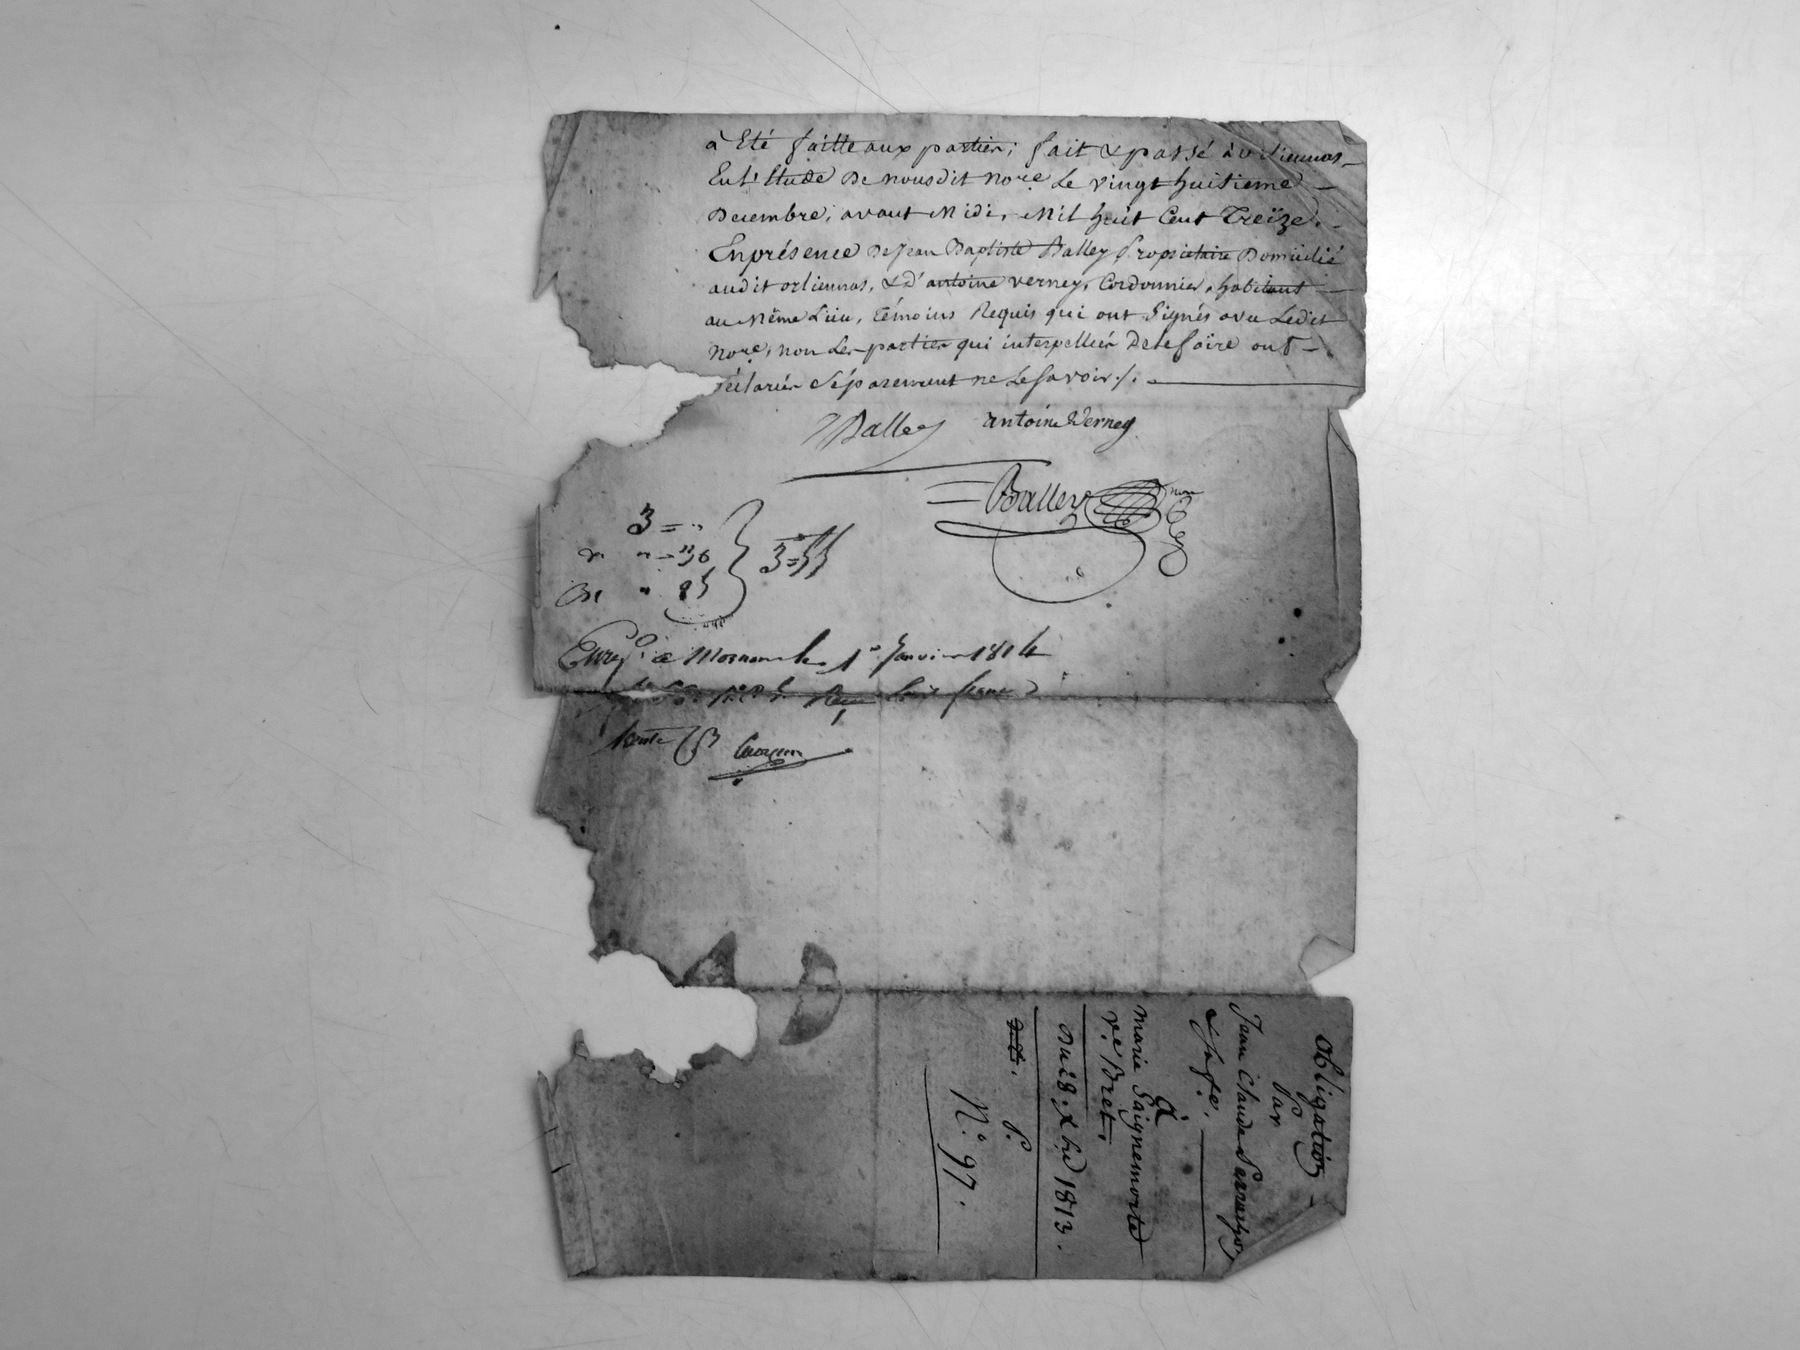 à Eté faitte aux parties; fait & passé à orlienas
En l'Etude De nousdit Nore. Le vingt huitieme
Decembre, avant Midi, Mil huit Cent Treize.
En présence De Jean Baptiste Balley Propriétaire Domicilié
audit orlienas, & D'antoine Verney, Cordonnier, habitant
au Même Lieu, Témoins Requis qui ont Signés avec Ledit
Nore, non Les parties qui interpellées De le faire ont
déclarées Séparement ne Le Savoir./.
Balley antoine Verney
Balley nore
3 = "
" " - 30
" 25
3=55
Enregé. à Mornant le 1er Janvier 1814
trois francs
trente
Obligation
Par
Jean Claude
& Sa fe.
à
Marie Saignemorte
ve. Bret.
Du 28. Xbre 1813.
P.
N.° 97.